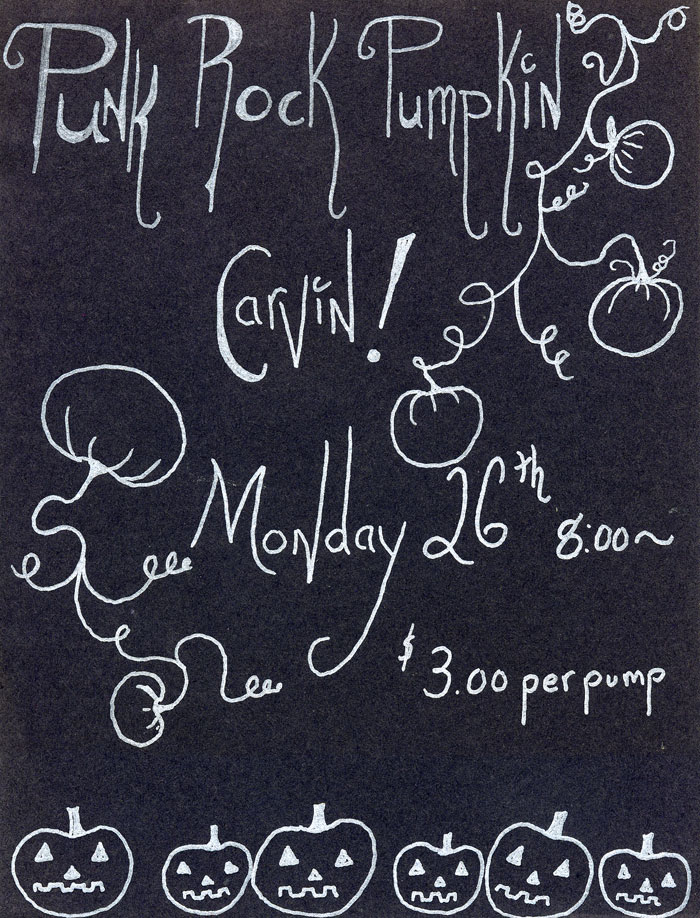 Punk Rock Pumpkin
Carvin!
Monday 26th 8:00~
$3.00 per pump